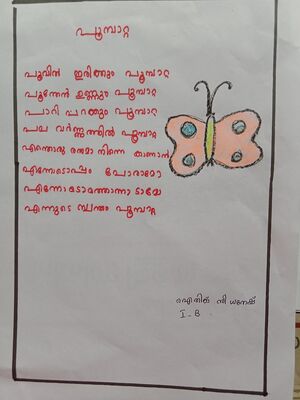 പൂമ്പാറ്റ
പൂവിൽ ഇരിക്കും പൂമ്പാറ്റ
പൂന്തേൻ ഉണ്ണും പൂമ്പാറ്റ
പാറി പറക്കും പൂമ്പാറ്റ
പല വർണ്ണത്തിൽ പൂമ്പാറ്റ
എന്തൊരു രസമാ നിന്നെ കാണാൻ
എന്നോടൊപ്പം പോരാമോ
എന്നോടൊത്തൊന്നാടാമോ
എന്നുടെ സ്വന്തം പൂമ്പാറ്റ
സി ധനേഷ്
I-B